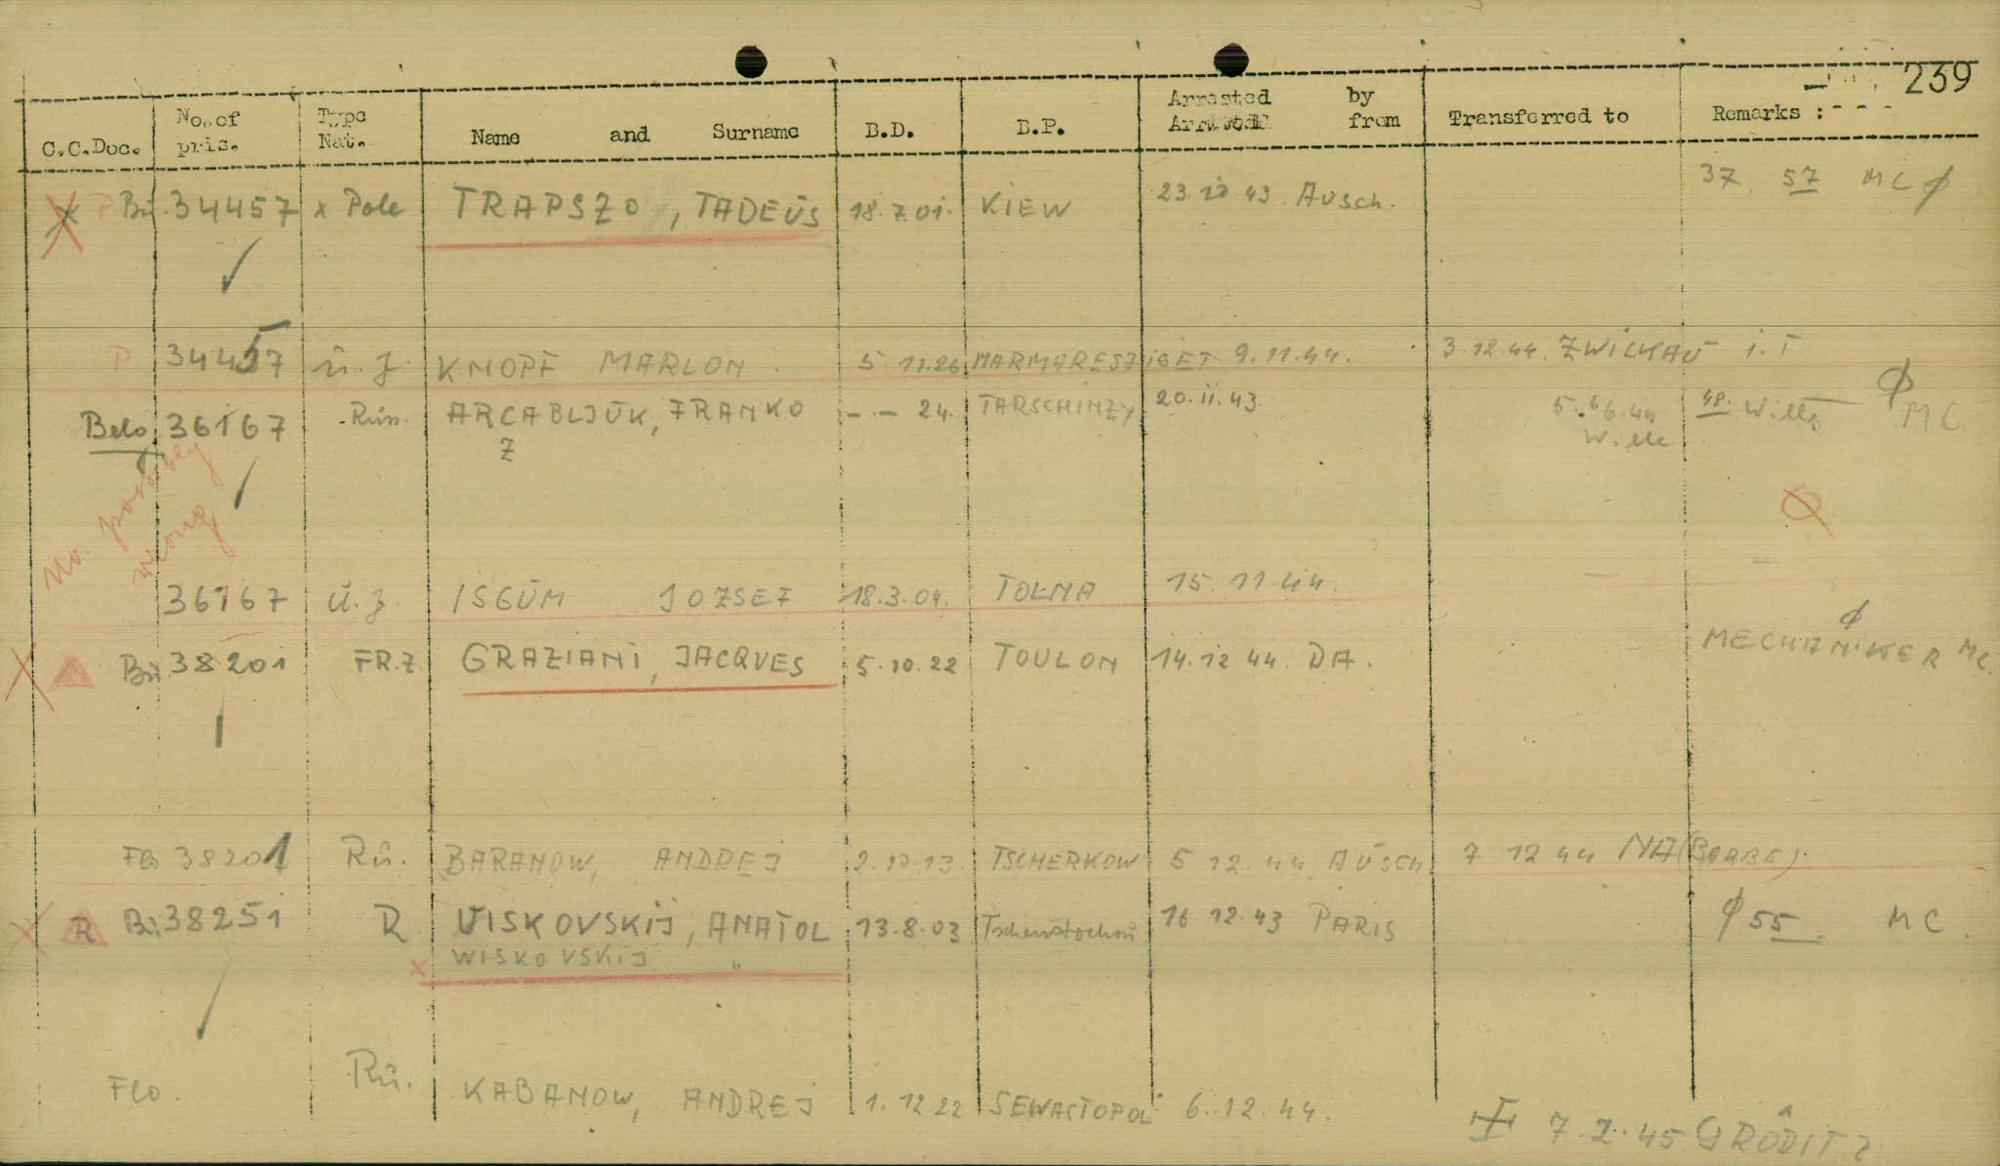 239
C.C.Doc. No. of pris. Type Nat. Name and Surname B.D. B.P. Arrested by from Transferred to Remarks :
X P Bu 34457 x Pole TRAPSZO, TADEUS 18.7.01. KIEW 23.12 43. Ausch. 37 57 MC
P 34457 U.J. KNOPF MARLON. 5 11.26 MARMARESZIGET 9.11.44. 3.12.44. ZWICKAU
Belo 36167 Russ. ARCABLJUK, FRANKO - - 24. TARSCHINZY 20.11.43 5.6.44 48. Wille MC
Z Wille
No. porobley wrong
36167 U.J. ISGUM JOZSEF 18.3.04. TOLNA 15.11.44.
X Bu 38201 FR.Z GRAZIANI, JACQUES 5.10.22 TOULON 14.12 44. DA. MECHANIKER MC.
Flo 38201 Ru. BARANOW, ANDREJ 2.10.13. TSCHERKOW 5 12.44 AUSCH 7 12 44 NA
X R Bu 38251 R VISKOVSKIJ, ANATOL 13.8.03 Tschenstochau 16 12.43 PARIS 55 MC.
x WISKOVSKIJ "
Flo. Ru. KABANOW, ANDREJ 1.12.22 SEWASTOPOL 6.12.44. 7.2.45 GRÖDITZ